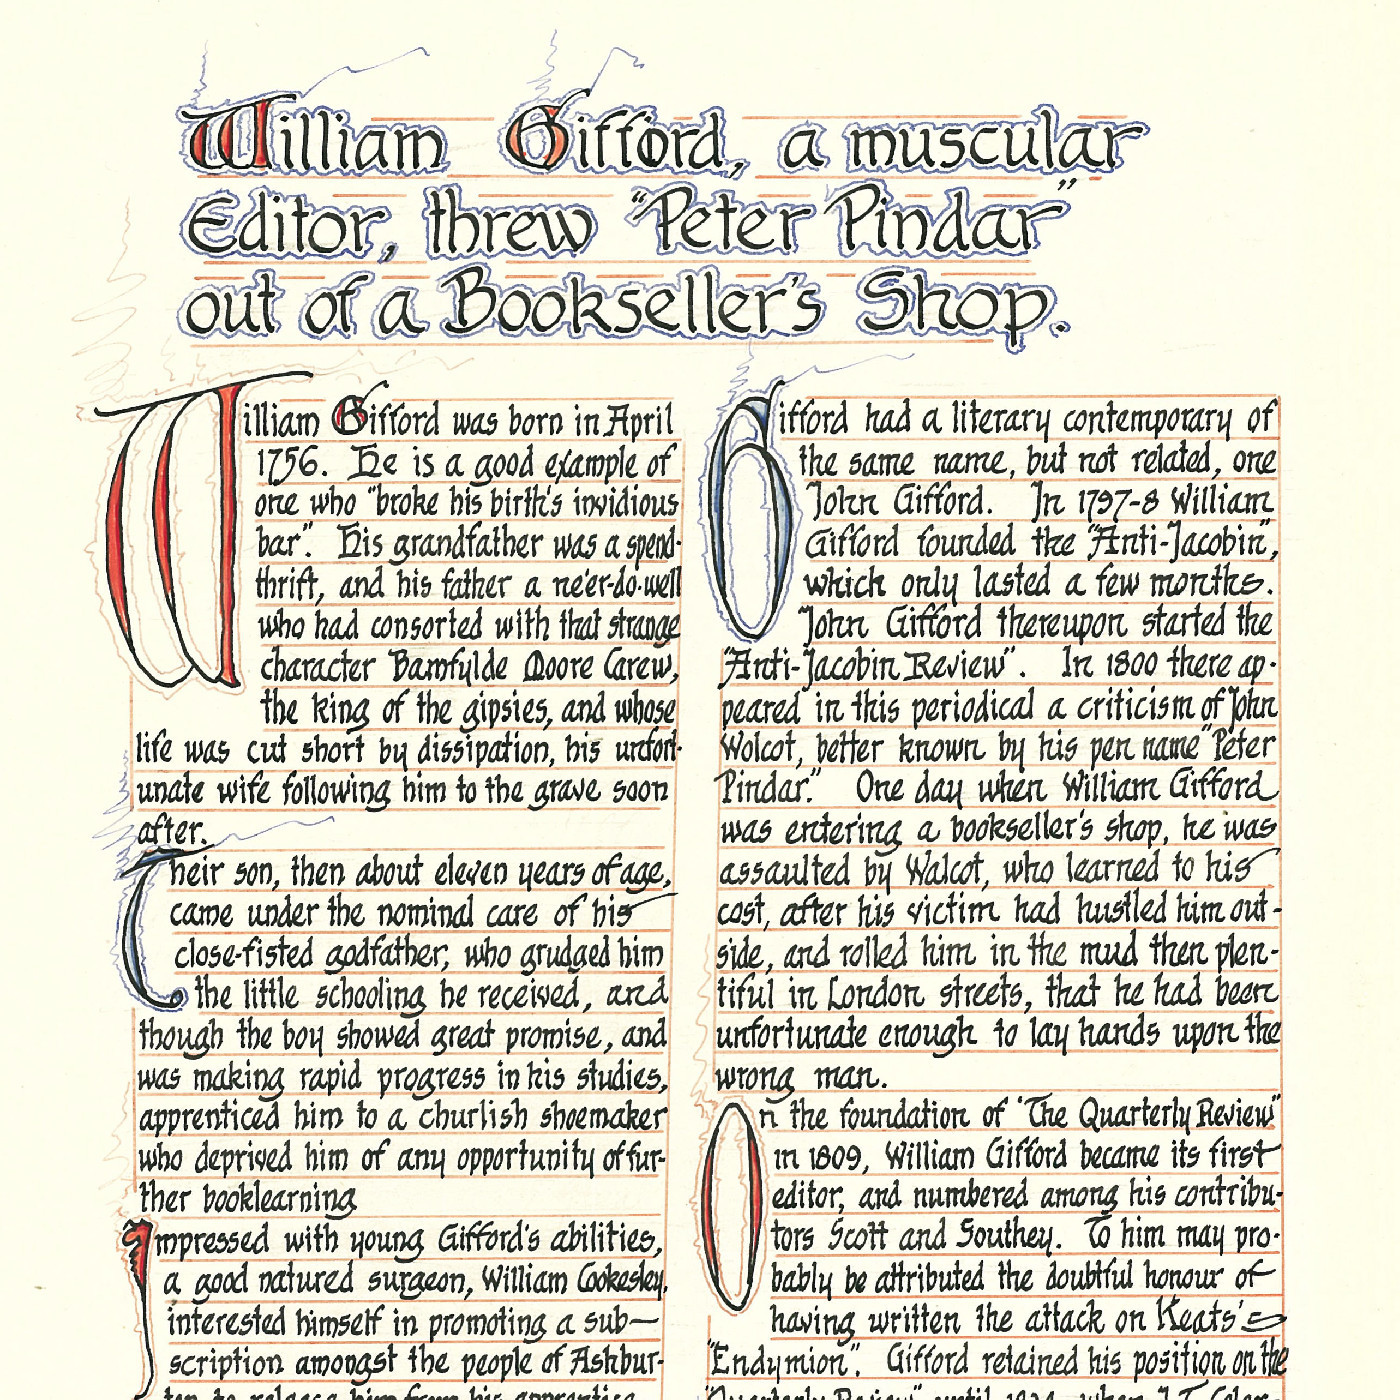 William Gifford, a muscular
Editor, threw "Peter Pindar"
out of a Bookseller's Shop.
William Gifford was born in April
1756. He is a good example of
one who "broke his birth's invidious
bar". His grandfather was a spend-
thrift, and his father a ne'er-do-well
who had consorted with that strange
character Bamfylde Moore Carew,
the king of the gipsies, and whose
life was cut short by dissipation, his unfort-
unate wife following him to the grave soon
after.
Their son, then about eleven years of age,
came under the nominal care of his
close-fisted godfather, who grudged him
the little schooling he received, and
though the boy showed great promise, and
was making rapid progress in his studies,
apprenticed him to a churlish shoemaker
who deprived him of any opportunity of fur-
ther booklearning
Impressed with young Gifford's abilities,
a good natured surgeon, William Cookesley,
interested himself in promoting a sub-
scription amongst the people of Ashbur-
ton to release him from his apprentice
Gifford had a literary contemporary of
the same name, but not related, one
John Gifford. In 1797-8 William
Gifford founded the "Anti-Jacobin",
which only lasted a few months.
John Gifford thereupon started the
"Anti-Jacobin Review". In 1800 there ap-
peared in this periodical a criticism of John
Wolcot, better known by his pen name "Peter
Pindar." One day when William Gifford
was entering a bookseller's shop, he was
assaulted by Walcot, who learned to his
cost, after his victim had hustled him out-
side, and rolled him in the mud then plen-
tiful in London streets, that he had been
unfortunate enough to lay hands upon the
wrong man.
On the foundation of 'The Quarterly Review"
in 1809, William Gifford became its first
editor, and numbered among his contribu-
tors Scott and Southey. To him may pro-
bably be attributed the doubtful honour of
having written the attack on Keats'
"Endymion". Gifford retained his position on the
"Quarterly Review" until 1824, when J.T. Coler-